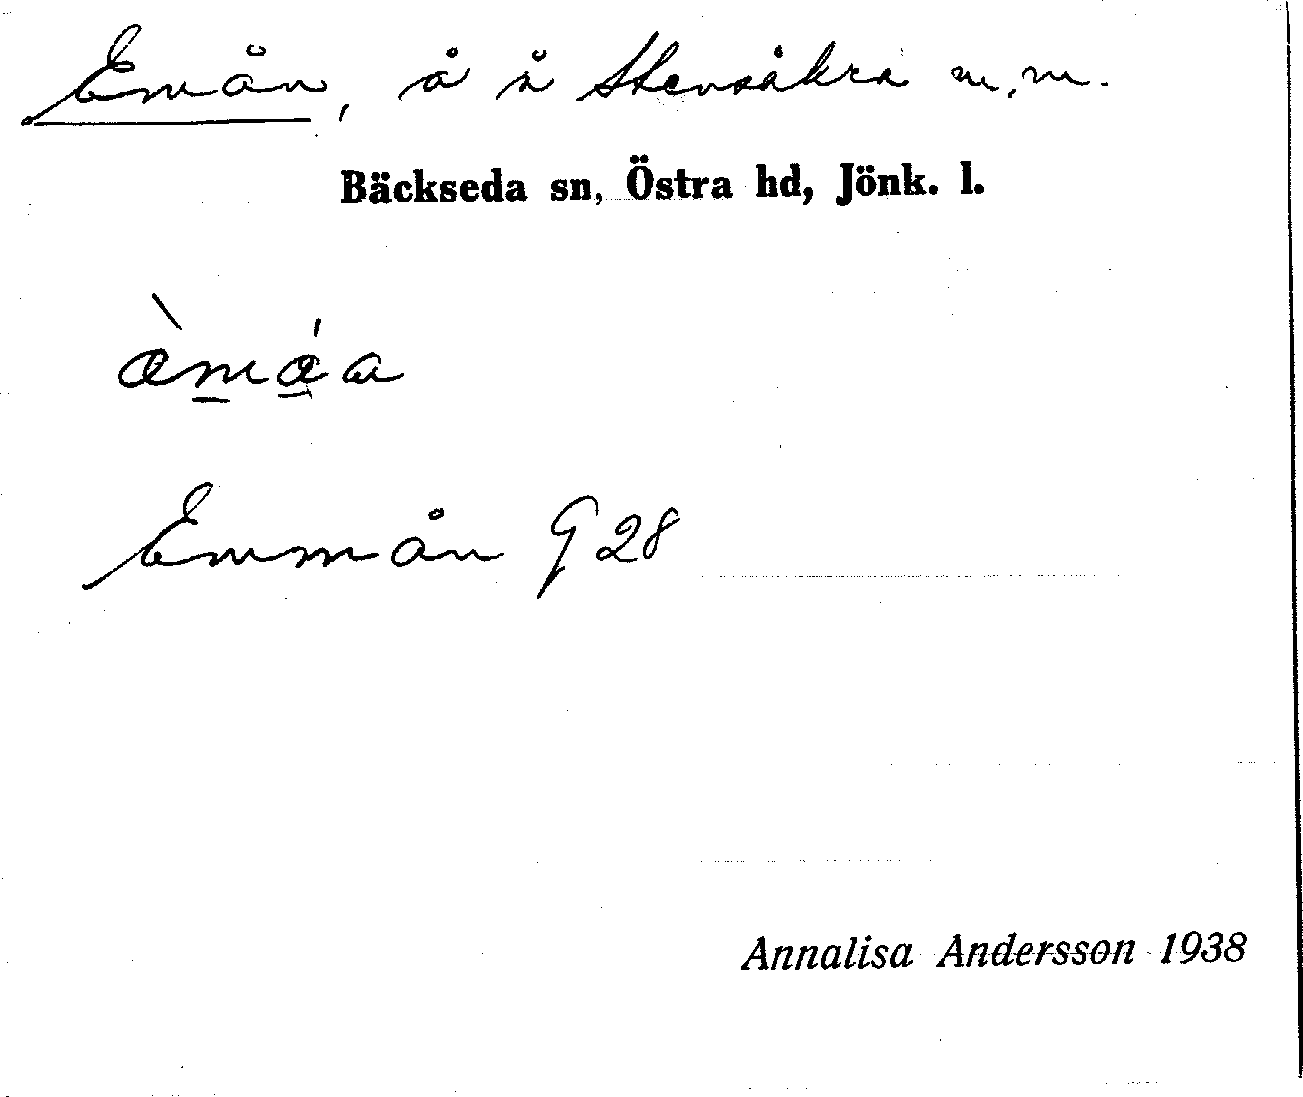 Emån, å å Stensåkra m.m.
Bäckseda sn, Östra hd, Jönk. l.
Emmån G 28
Annalisa Andersson 1938